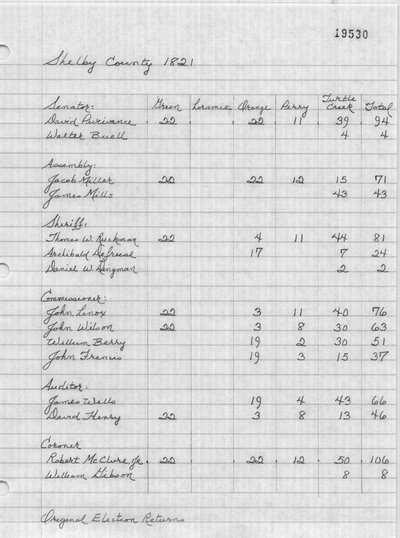 19530
Shelby County 1821
Senator: Green Loramie Orange Perry Turtle Creek Total
David Purivance 22 22 11 39 94
Walter Buell 4 4
Assembly:
Jacob Miller 22 22 12 15 71
James Mills 43 43
Sheriff:
Thomas W. Ruckman 22 4 11 44 81
Archibald Defreese 17 7 24
Daniel W. 2 2
Commissioner:
John Lenox 22 3 11 40 76
John Wilson 22 3 8 30 63
William Berry 19 2 30 51
John Francis 19 3 15 37
Auditor:
James Wells 19 4 43 66
David Henry 22 3 8 13 46
Coroner
Robert McClure Jr. 22 22 12 50 106
William Gibson 8 8
Original Election Returns